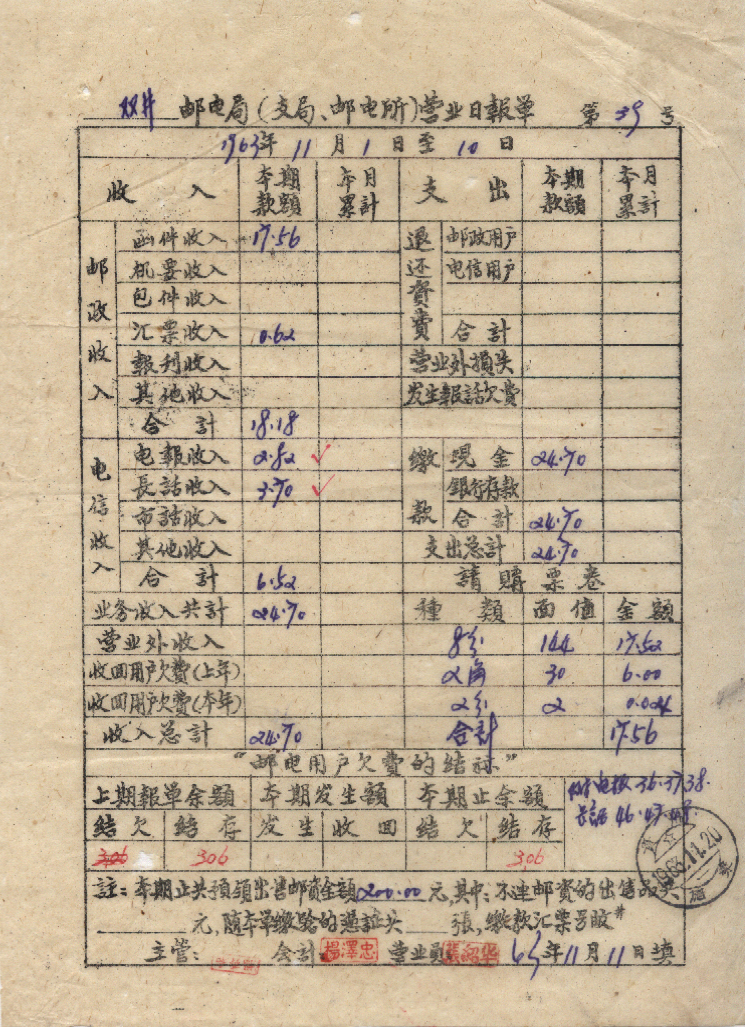 双井 邮电局(支局、邮电所)营业日報单 第 39 号
1963年 11 月 1 日至 10 日
收 入 本期款額 本月累計 支 出 本期款額 本月累計
邮政收入 函件收入 17.56 退还資費 邮政用户
机要收入 电信用户
包件收入
汇票收入 0.62 合計
報刊收入 营业外損失
其他收入 发生報話欠費
合計 18.18
电信收入 电報收入 2.82 ✓ 繳款 現金 24.70
長話收入 3.70 ✓ 銀行存款
市話收入 合計 24.70
其他收入 支出总計 24.70
合計 6.52 請購票卷
业务收入共計 24.70 種類 面值 金額
营业外收入 8分 144 17.52
收回用户欠費(上年) 2角 30 6.00
收回用户欠費(本年) 2分 2 0.04
收入总計 24.70 合計 17.56
"邮电用户欠費的结
上期報单余額 本期发生額 本期止余額
结欠 结存 发生 收回 结欠 结存
306 306 306
电报 36.37.38.
長話 46.47
1963.11.20
註:本期止共預領出售邮資金額200.00元,其中:不連邮資的出售品共
元,隨本单繳驗的 張,繳款汇票号收#
主管: 会計 楊澤忠 营业員 63年11月11日填